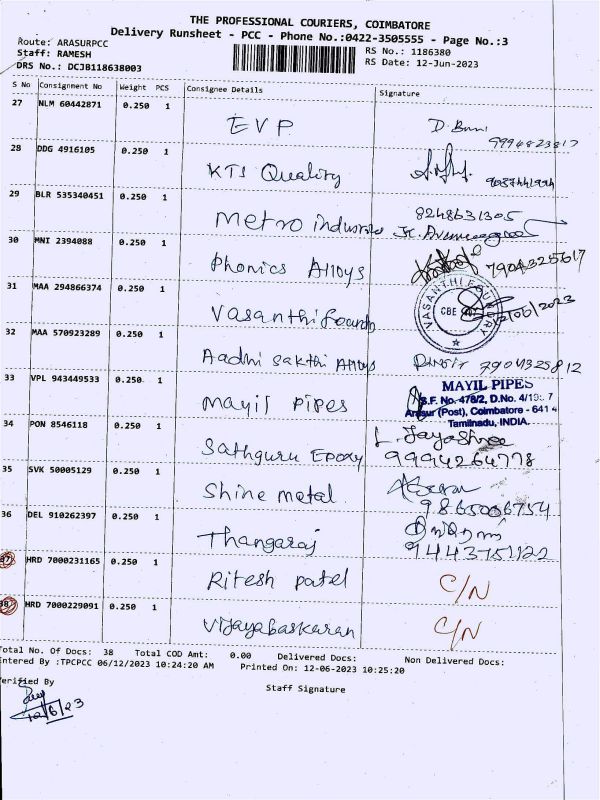 THE PROFESSIONAL COURIERS, COIMBATORE
Delivery Runsheet - PCC - Phone No.:0422-3505555 - Page No.:3
Route: ARASURPCC
RS No.: 1186380
Staff: RAMESH
RS Date: 12-Jun-2023
DRS No.: DCJB118638003
S No Consignment No Weight PCS Consignee Details Signature
27 NLM 60442871 0.250 1
EVP
28 DDG 4916105 0.250 1
KTS Quality
29 BLR 535340451 0.250 1
Metro industries 8248631305
30 MNI 2394088 0.250 1
Phonics Alloys 7904325617
31 MAA 294866374 0.250 1
Vasanthi foundry VASANTHI FOUNDRY CBE 12/06/2023
32 MAA 570923289 0.250 1
Aadhi sakthi Alloys 7904325812
33 VPL 943449533 0.250 1
Mayil Pipes
MAYIL PIPES
S.F. No. 478/2, D.No. 4/
Arasur (Post), Coimbatore - 641 4
Tamilnadu, INDIA.
34 PON 8546118 0.250 1
Sathguru Epoxy L. Jayashree
99994264778
35 SVK 50005129 0.250 1
Shine metal 9865006754
36 DEL 910262397 0.250 1
Thangaraj 9443751122
37 HRD 7000231165 0.250 1
Ritesh patel C/N
38 HRD 7000229091 0.250 1
Vijayabaskaran C/N
Total No. Of Docs: 38 Total COD Amt: 0.00 Delivered Docs: Non Delivered Docs:
Entered By :TPCPCC 06/12/2023 10:24:20 AM Printed On: 12-06-2023 10:25:20
Verified By
Staff Signature
12/6/23